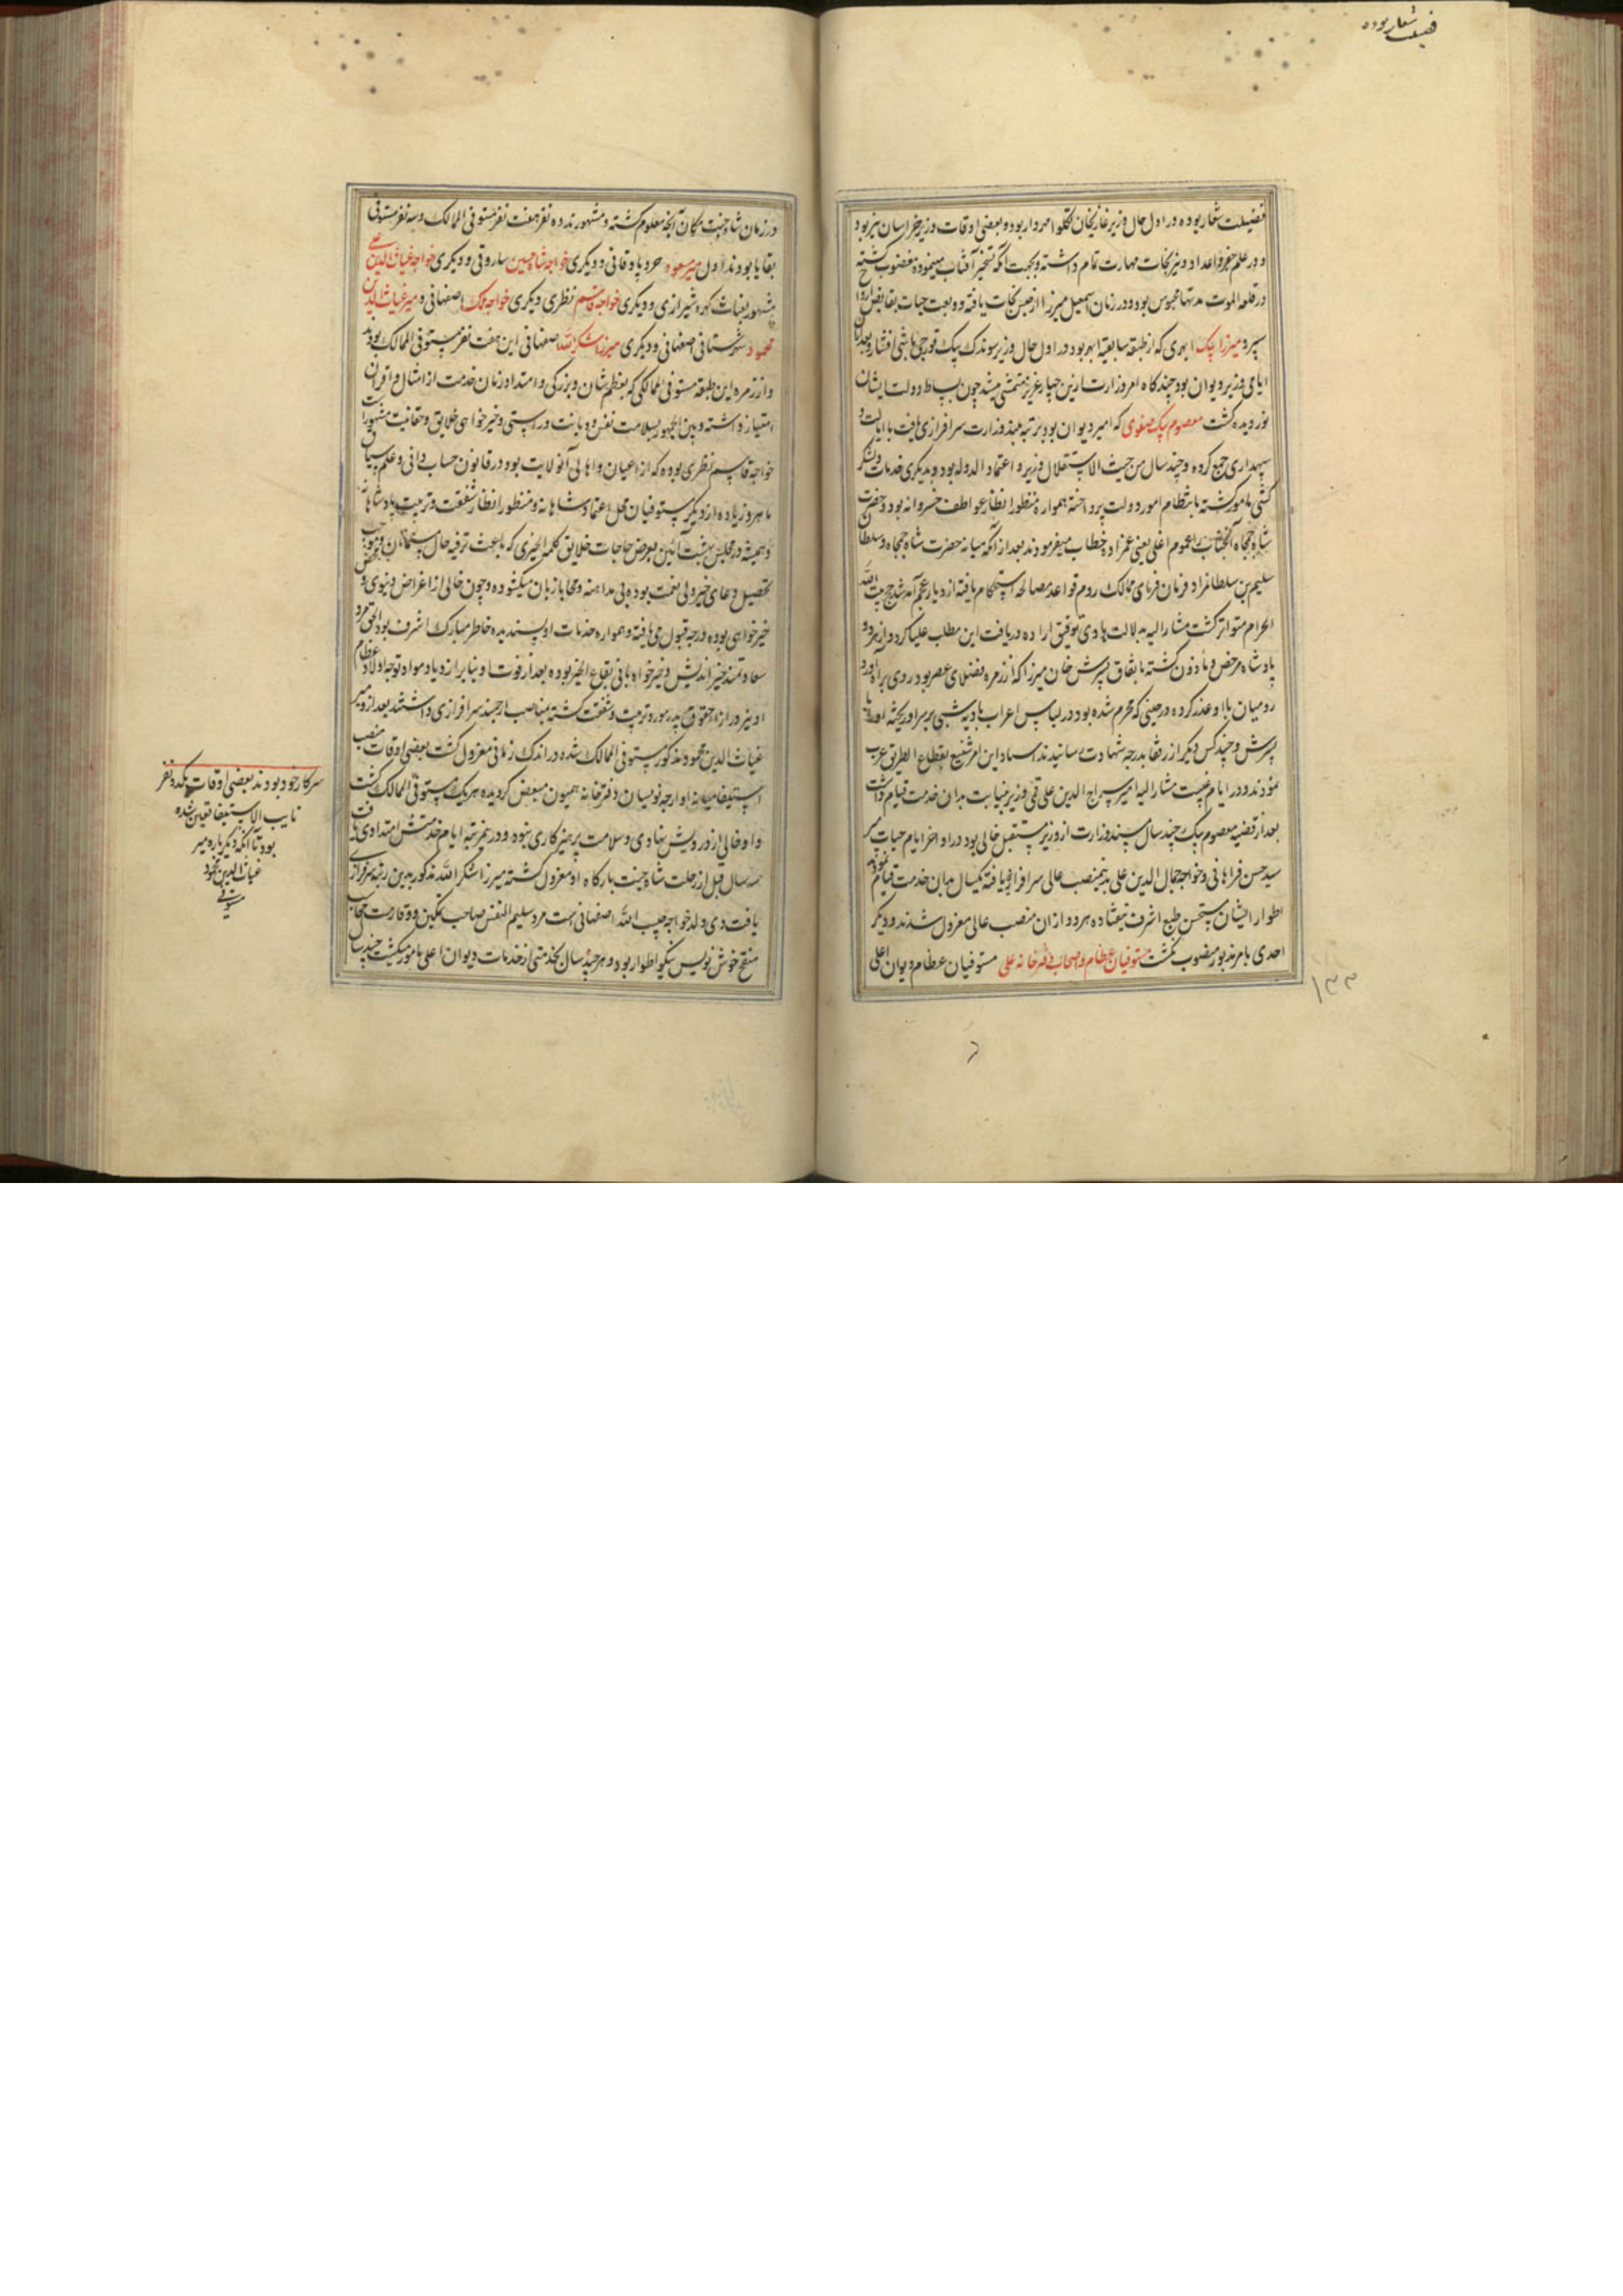 فضیلت شعار بوده
فضیلت شعار بوده در اول حال وزیر غازیخان تکلو مهردار بوده و بعضی اوقات وزیر خراسان نیز بود
و در علم جفر و اعداد و نیرنجات مهارت تمام داشته و بجهت آنکه تسخیر آفتاب مینموده مغضوب گشته
در قلعه الموت مدتها محبوس بود و در زمان اسمعیل میرزا از حبس نجات یافته ودیعت حیات بقابض ارواح
سپرد میرزا بیک ابهری که از طبقه سابقیه ابهر بود در اول حال وزیر سوندک بیک قورچی باشی افشار و بعد از آن
ایامی وزیر دیوان بود چند گاه امر وزارت از این چهار عزیز متمشی میشد چون بساط دولت ایشان
نوردیده گشت معصوم بیک صفوی که امیر دیوان بود برتبه بلند وزارت سرافرازی یافت با ایالت و
سپهداری جمع کرده و چند سال من حیث الاستقلال وزیر و اعتماد الدوله بود و بدیگری خدمات ولشکر
کشی مامور گشته بانتظام امور دولت پرداخته همواره منظور انظار عواطف خسروانه بود و حضرت
شاه جمجاه آنجناب را عموم اغلی یعنی عمزاده خطاب میفرمودند بعد از آنکه میانه حضرت شاه جمجاه و سلطان
سلیم بن سلطانمراد فرمان فرمای ممالک روم قواعد مصالحه استحکام یافته از دیار عجم آمد شد حج بیت الله
الحرام متواتر گشت مشار الیه بدلالت هادی توفیق اراده دریافت این مطلب علیا کرد و از هر دو
پادشاه مرخص و ماذون گشته باتفاق پسرش خان میرزا که از زمره فضلای عصر بود روی براه آورد
رومیان با او عذر کرده در حینی که محرم شده بود در لباس اعراب بادیه شبی بر سر او ریخته او را با
پسرش و چند کس دیگر از رفقا بدرجه شهادت رسانیدند اسناد این امر شنیع بقطاع الطریق عرب
نمودند و در ایام غیبت مشار الیه امیر سراج الدین علی قمی وزیر بنیابت بدان خدمت قیام داشت
بعد از قضیه معصوم بیک چند سال مسند وزارت از وزیر مستقل خالی بود در اواخر ایام حیات میر
سید حسن فراهانی و خواجه جمال الدین علی بدینمنصب عالی سرافرازی یافته یکسال بدان خدمت قیام نمودند
اطوار ایشان مستحسن طبع اشرف نیفتاده هر دو از آن منصب عالی معزول شدند و دیگر
احدی بامر مذبور منصوب نگشت مستوفیان عظام و اصحاب دفترخانه علی مستوفیان عظام دیوان اعلی
۱۳۳
در زمان شاه جنت مکان آنچه معلوم گشته و مشهورند ده نفر هفت نفر مستوفی الممالک و سه نفر مستوفی
بقایا بودند اول میر مسعود وقانی و دیگری خواجه شاه حسین ساروقی و دیگری خواجه غیاث الدین علی
مشهور بغیاث کهره شیرازی و دیگری خواجه قاسم نطنزی دیگری خواجه ملک اصفهانی و میر غیاث الدین
محمود شهرستانی اصفهانی و دیگری میرزا شکر الله اصفهانی این هفت نفر مستوفی الممالک بودند
و از زمره این طبقه مستوفی الممالکی که بعظم شان و بزرگی و امتداد زمان خدمت از امثال و اقران
امتیاز داشته و بین الجمهور بسلامت نفس و دیانت و راستی و خیرخواهی خلایق و حقانیت مشهور است
خواجه قاسم نطنزی بوده که از اعیان و اهالی آنولایت بود در قانون حساب دانی و علم سیاق
ماهر و زیاده از دیگر مستوفیان محل اعتماد شاهانه و منظور انظار شفقت و تربیت پادشاهانه
و همیشه در مجلس بهشت آئین بعرض حاجات خلایق کلمه الخیری که باعث ترفیه حال مسلمانان و موجب
تحصیل دعای خیر ولی نعمت بوده بی مداهنه و محابا زبان میگشوده و چون خالی از اغراض دنیوی و محض
خیرخواهی بوده درجه قبول می یافته و همواره خدمات او پسندیده خاطر مبارک اشرف بود الحق مرد
سعادتمند خیر اندیش و خیرخواه بانی بقاع الخیر بوده بعد از فوت او بنابر ازدیاد مواد توجه اولاد عظام
او نیز در ازاء حقوق پدر مورد تربیت و شفقت گشته بمناصب ارجمند سرافرازی داشتند بعد ازو میر
غیاث الدین محمود مذکور مستوفی الممالک شده در اندک زمانی معزول گشت بعضی اوقات منصب
استیفا میانه اوارجه نویسان دفترخانه همیون مبعض گردیده هر یک مستوفی الممالک گشت
و او خالی از درویش نهادی و سلامت پرهیزکاری نبوه و در مرتبه ایام خدمتش امتدادی یافت
سه سال قبل از رحلت شاه جنت بارگاه او معزول گشته میرزا شکر الله مذکور بدین رتبه سرفرازی
یافت وی ولد خواجه حبیب الله اصفهانی است مرد سلیم النفس صاحب تمکین و وقار
منقح خوش نویس نیکو اطوار بود و هر چند سال بخدمتی از خدمات دیوان اعلی مامور میگشت چند سال
سرکار خود بودند بعضی اوقات یکدو نفر
نایب الاستیفا تعیین شده
بود تا آنکه دیگر باره میر
غیاث الدین محمود
مستوفی